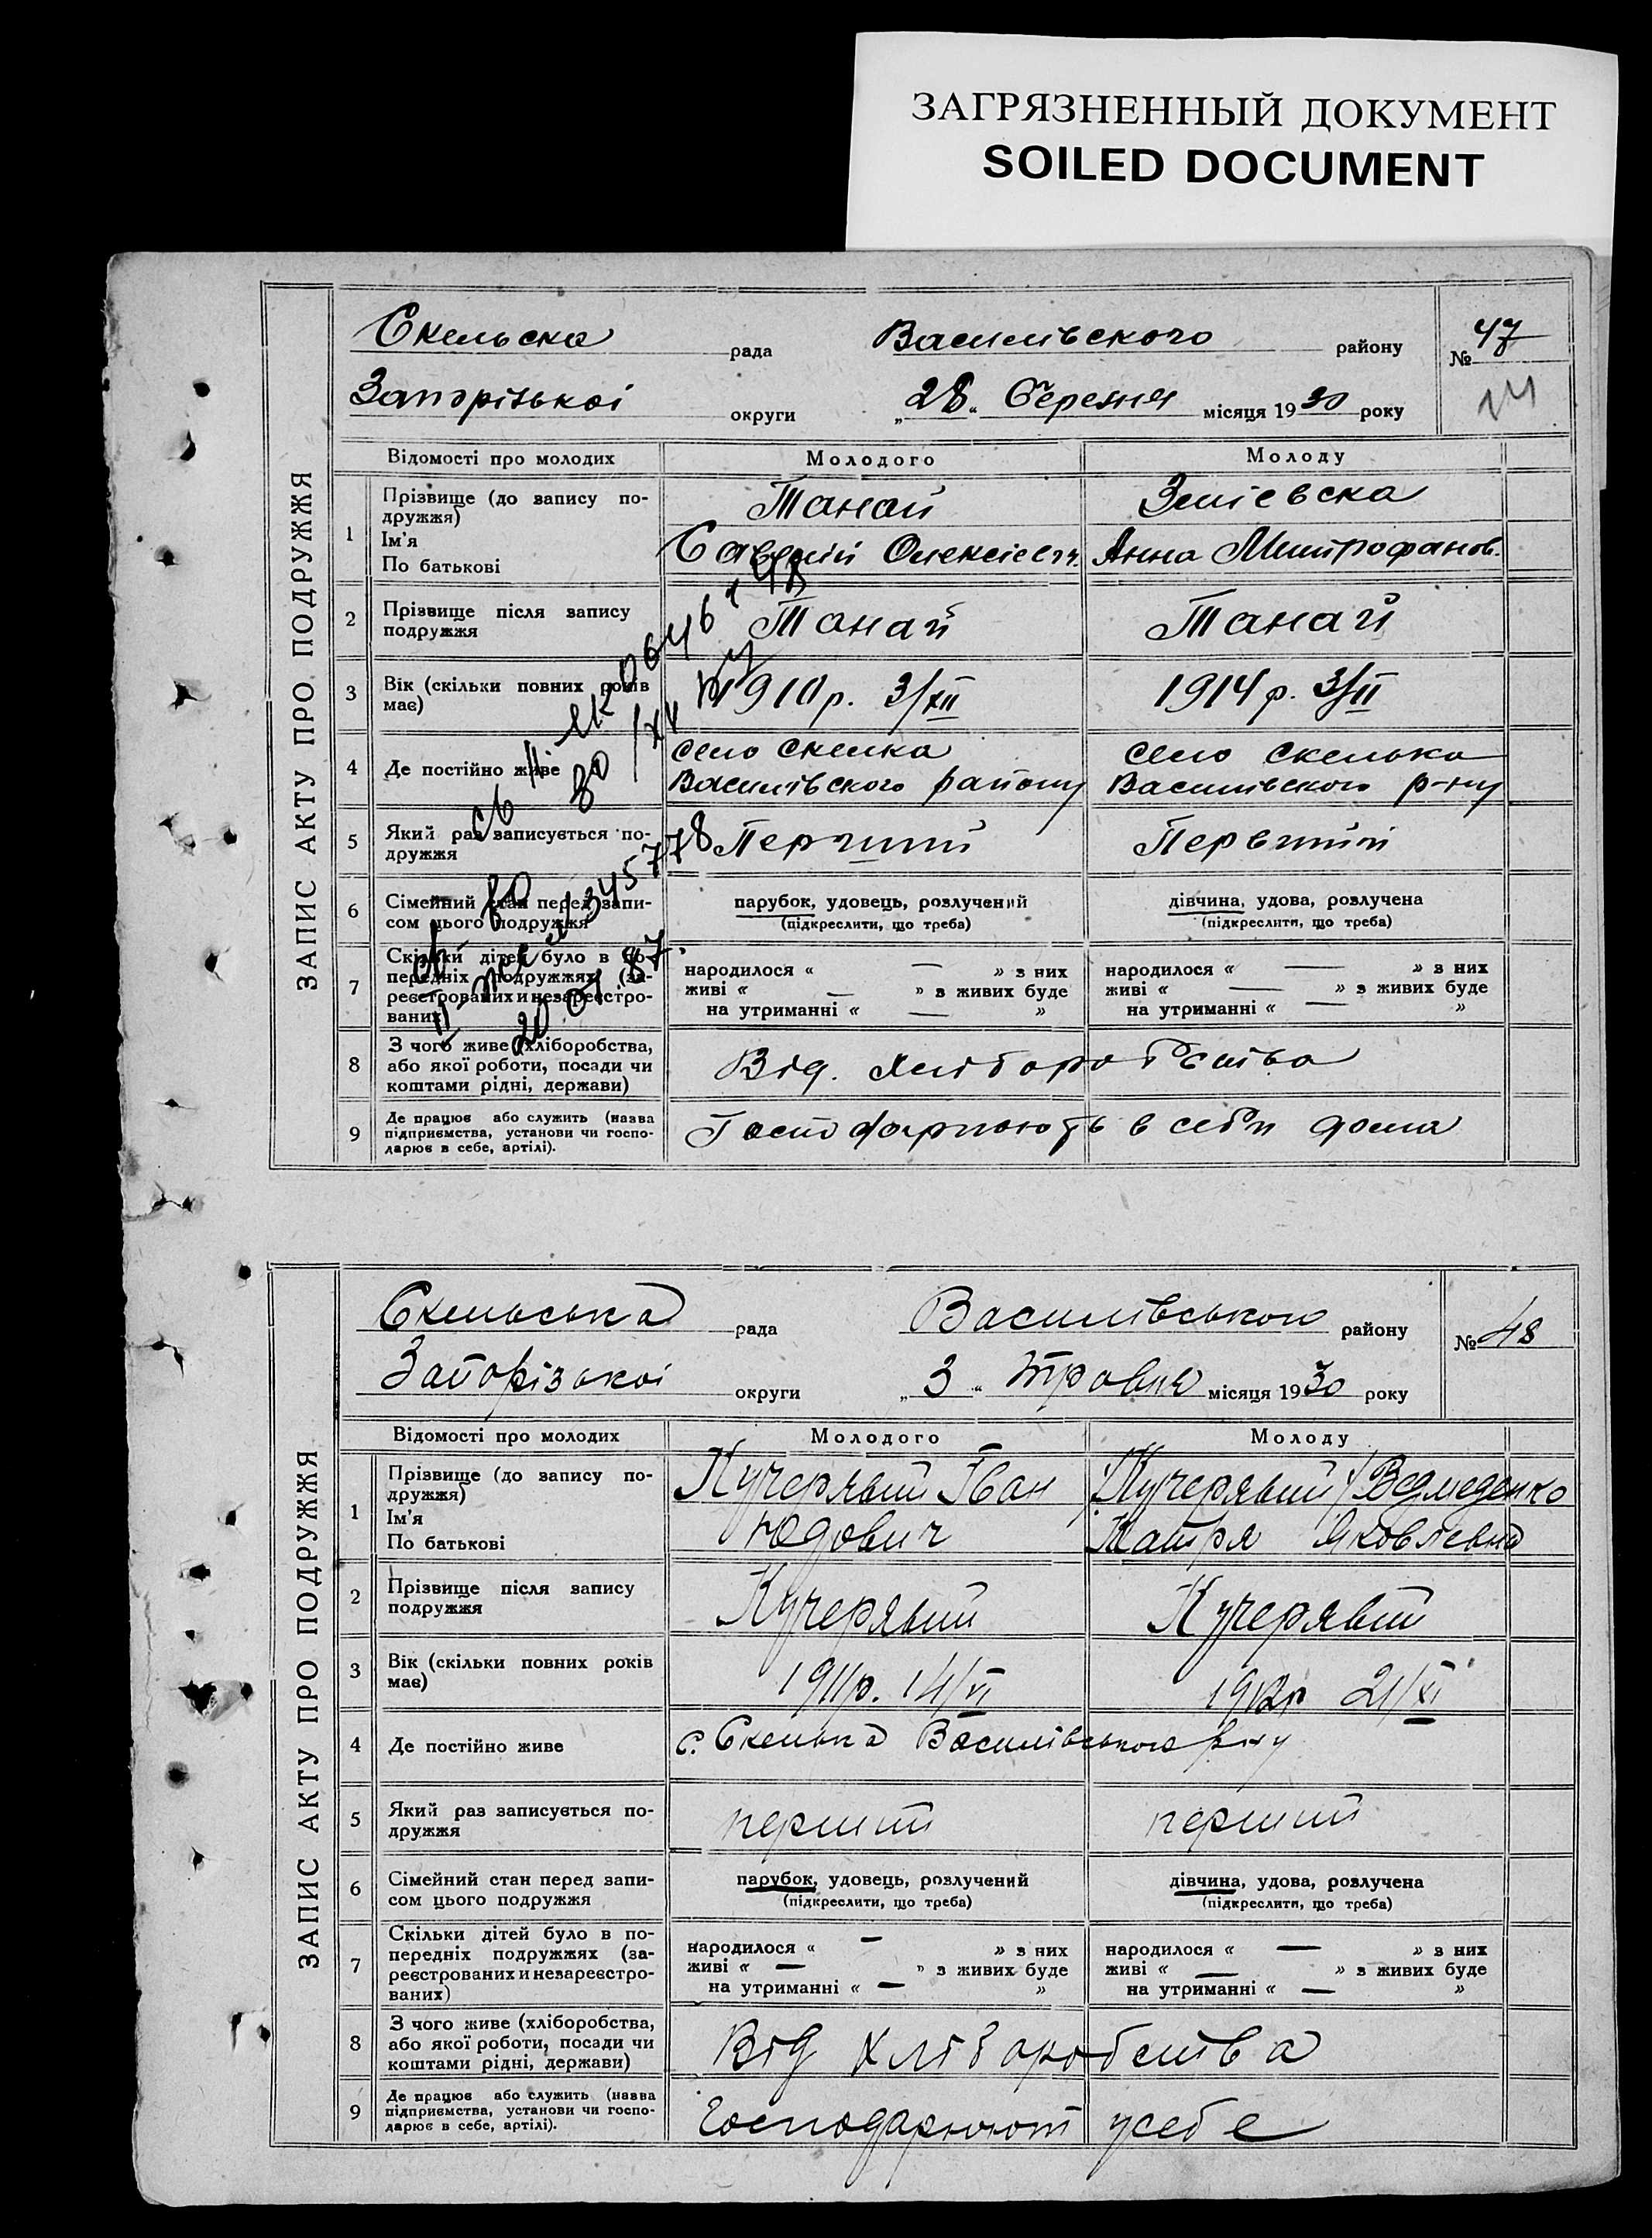 ЗАГРЯЗНЕННЫЙ ДОКУМЕНТ
SOILED DOCUMENT
ЗАПИС АКТУ ПРО ПОДРУЖЖЯ
Скельска рада Василівского району № 47
Запорізькоі округи „28“ Березня місяця 1930 року
Відомості про молодих Молодого Молоду
1 Прізвище (до запису по-
дружжя)
Ім'я
По батькові
Танай Зміевска
Олексіевич. Анна Митрофанов.
2 Прізвище після запису
подружжя
Танай Танай
3 Вік (скільки повних років
має)
1910 р. 3/XII 1914 р. 3/II
4 Де постійно живе
село Скелка село Скелька
Василівского району Василівского р-ну
5 Який раз записується по-
дружжя
Перший Первший
6 Сімейний стан перед запи-
сом цього подружжя
парубок, удовець, розлучений дівчина, удова, розлучена
(підкреслити, що треба) (підкреслити, що треба)
7 Скільки дітей було в по-
передніх подружжях (за-
реєстрованих и незареєстро-
ваних)
народилося « — » з них народилося « — » з них
живі « — » з живих буде живі « — » з живих буде
на утриманні « — » на утриманні « — »
8 З чого живе (хліборобства,
або якої роботи, посади чи
коштами рідні, держави)
Від. хліборобства
9 Де працює або служить (назва
підприємства, установи чи госпо-
дарює в себе, артілі).
Господарюють в себи дома
20 07 87.
ЗАПИС АКТУ ПРО ПОДРУЖЖЯ
Скельська рада Василівського району № 48
Запорізькоі округи „3“ травня місяця 1930 року
Відомості про молодих Молодого Молоду
1 Прізвище (до запису по-
дружжя)
Ім'я
По батькові
Кучерявий Іван Кучерявий / Ведмеденко
Юдович Катря Яковлевна
2 Прізвище після запису
подружжя
Кучерявий Кучерявий
3 Вік (скільки повних років
має)
1911р. 14/VI 1912р 21/XI
4 Де постійно живе
с. Скелька Василівського р-ну
5 Який раз записується по-
дружжя
перший перший
6 Сімейний стан перед запи-
сом цього подружжя
парубок, удовець, розлучений дівчина, удова, розлучена
(підкреслити, що треба) (підкреслити, що треба)
7 Скільки дітей було в по-
передніх подружжях (за-
реєстрованих и незареєстро-
ваних)
народилося « — » з них народилося « — » з них
живі « — » з живих буде живі « — » з живих буде
на утриманні « — » на утриманні « — »
8 З чого живе (хліборобства,
або якої роботи, посади чи
коштами рідні, держави)
Від хліборобства
9 Де працює або служить (назва
підприємства, установи чи госпо-
дарює в себе, артілі).
Господарюют усебе